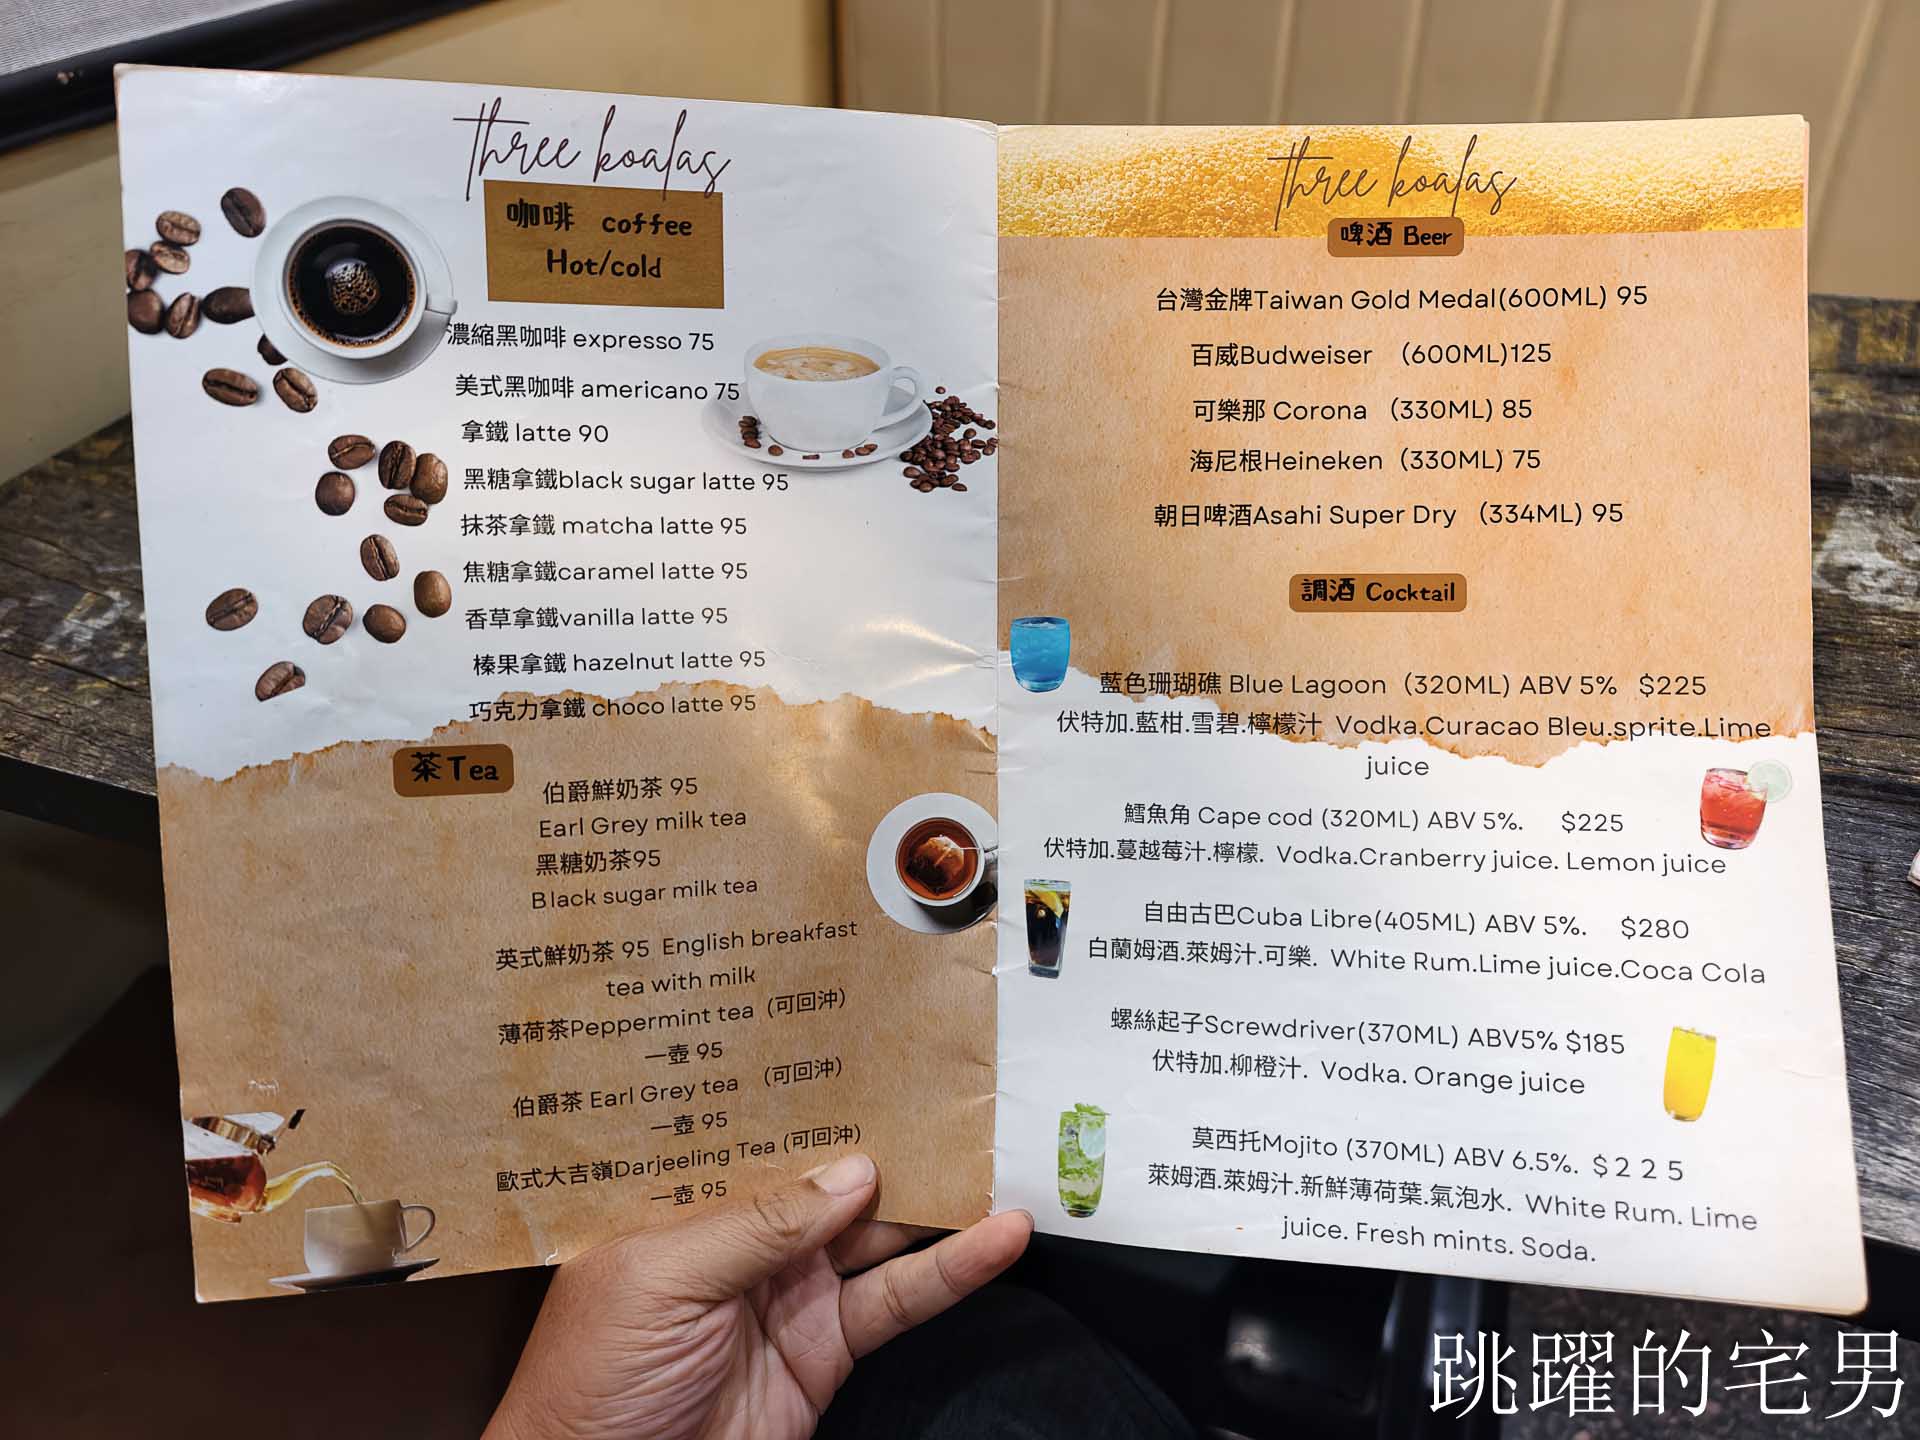 three koalas
咖啡 coffee
Hot/cold
濃縮黑咖啡 expresso 75
美式黑咖啡 americano 75
拿鐵 latte 90
黑糖拿鐵black sugar latte 95
抹茶拿鐵 matcha latte 95
焦糖拿鐵caramel latte 95
香草拿鐵vanilla latte 95
榛果拿鐵 hazelnut latte 95
巧克力拿鐵 choco latte 95
茶Tea
伯爵鮮奶茶 95
Earl Grey milk tea
黑糖奶茶95
Black sugar milk tea
英式鮮奶茶 95 English breakfast
tea with milk
薄荷茶Peppermint tea (可回沖)
一壺 95
伯爵茶 Earl Grey tea (可回沖)
一壺 95
歐式大吉嶺Darjeeling Tea (可回沖)
一壺 95
three koalas
啤酒 Beer
台灣金牌Taiwan Gold Medal(600ML) 95
百威Budweiser (600ML)125
可樂那 Corona (330ML) 85
海尼根Heineken (330ML) 75
朝日啤酒Asahi Super Dry (334ML) 95
調酒 Cocktail
藍色珊瑚礁 Blue Lagoon (320ML) ABV 5% $225
伏特加.藍柑.雪碧.檸檬汁 Vodka.Curacao Bleu.sprite.Lime
juice
鱈魚角 Cape cod (320ML) ABV 5%. $225
伏特加.蔓越莓汁.檸檬. Vodka.Cranberry juice. Lemon juice
自由古巴Cuba Libre(405ML) ABV 5%. $280
白蘭姆酒.萊姆汁.可樂. White Rum.Lime juice.Coca Cola
螺絲起子Screwdriver(370ML) ABV5% $185
伏特加.柳橙汁. Vodka. Orange juice
莫西托Mojito (370ML) ABV 6.5%. $225
萊姆酒.萊姆汁.新鮮薄荷葉.氣泡水. White Rum. Lime
juice. Fresh mints. Soda.
跳躍的宅男